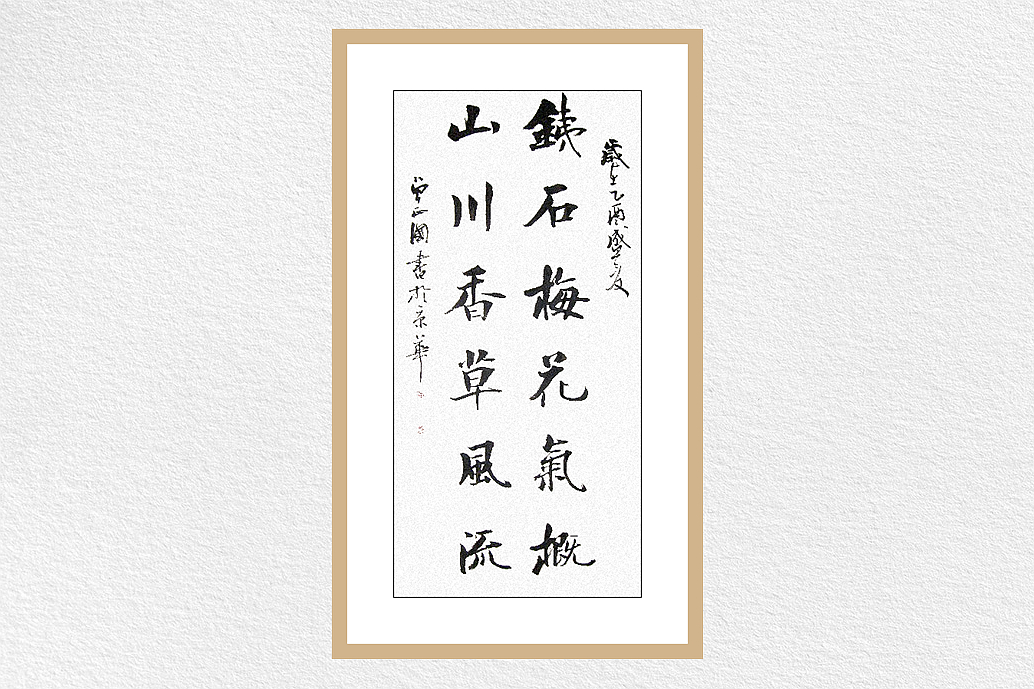 歲在乙酉盛夏
鐵石梅花氣概
山川香草風流
曾正國書於京華